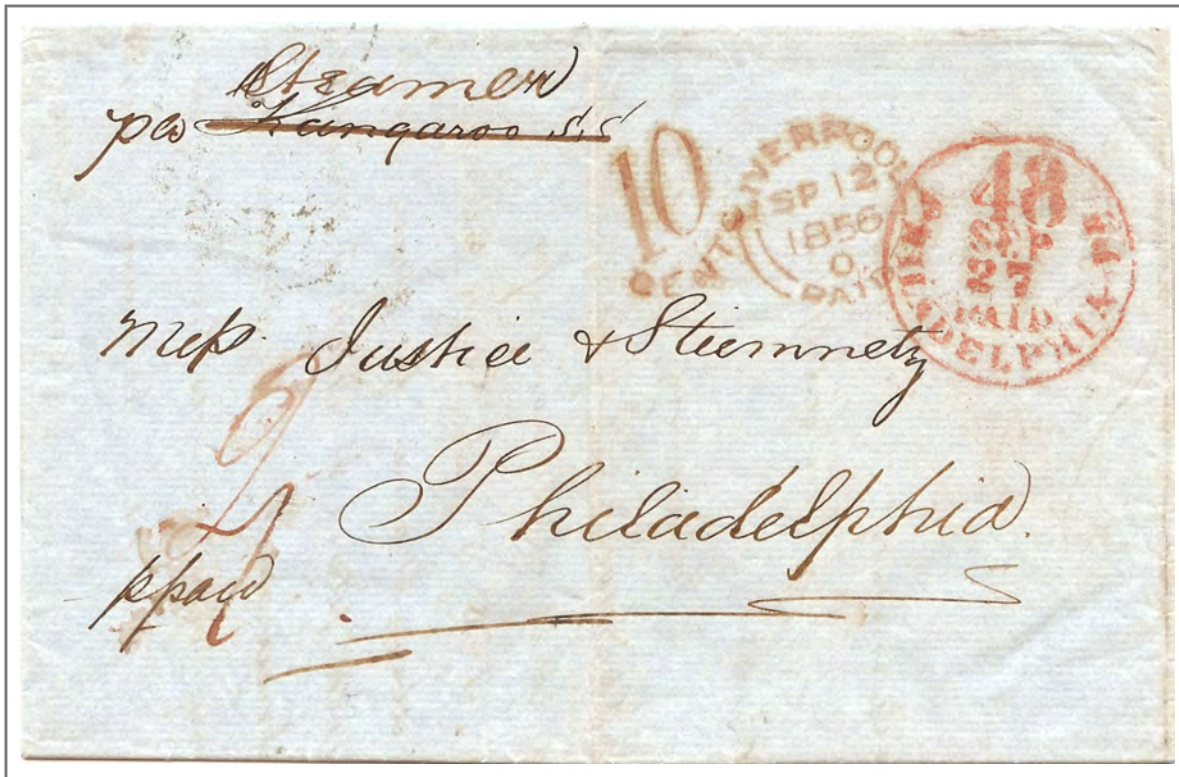 Steamer
per Kangaroo S.S
10
CENTS
LIVERPOOL
SP 12
1856
PAID
48
SEP
27
PAID
PHILADELPHIA PA
Mess Justice & Steinmetz
Philadelphia.
ppaid